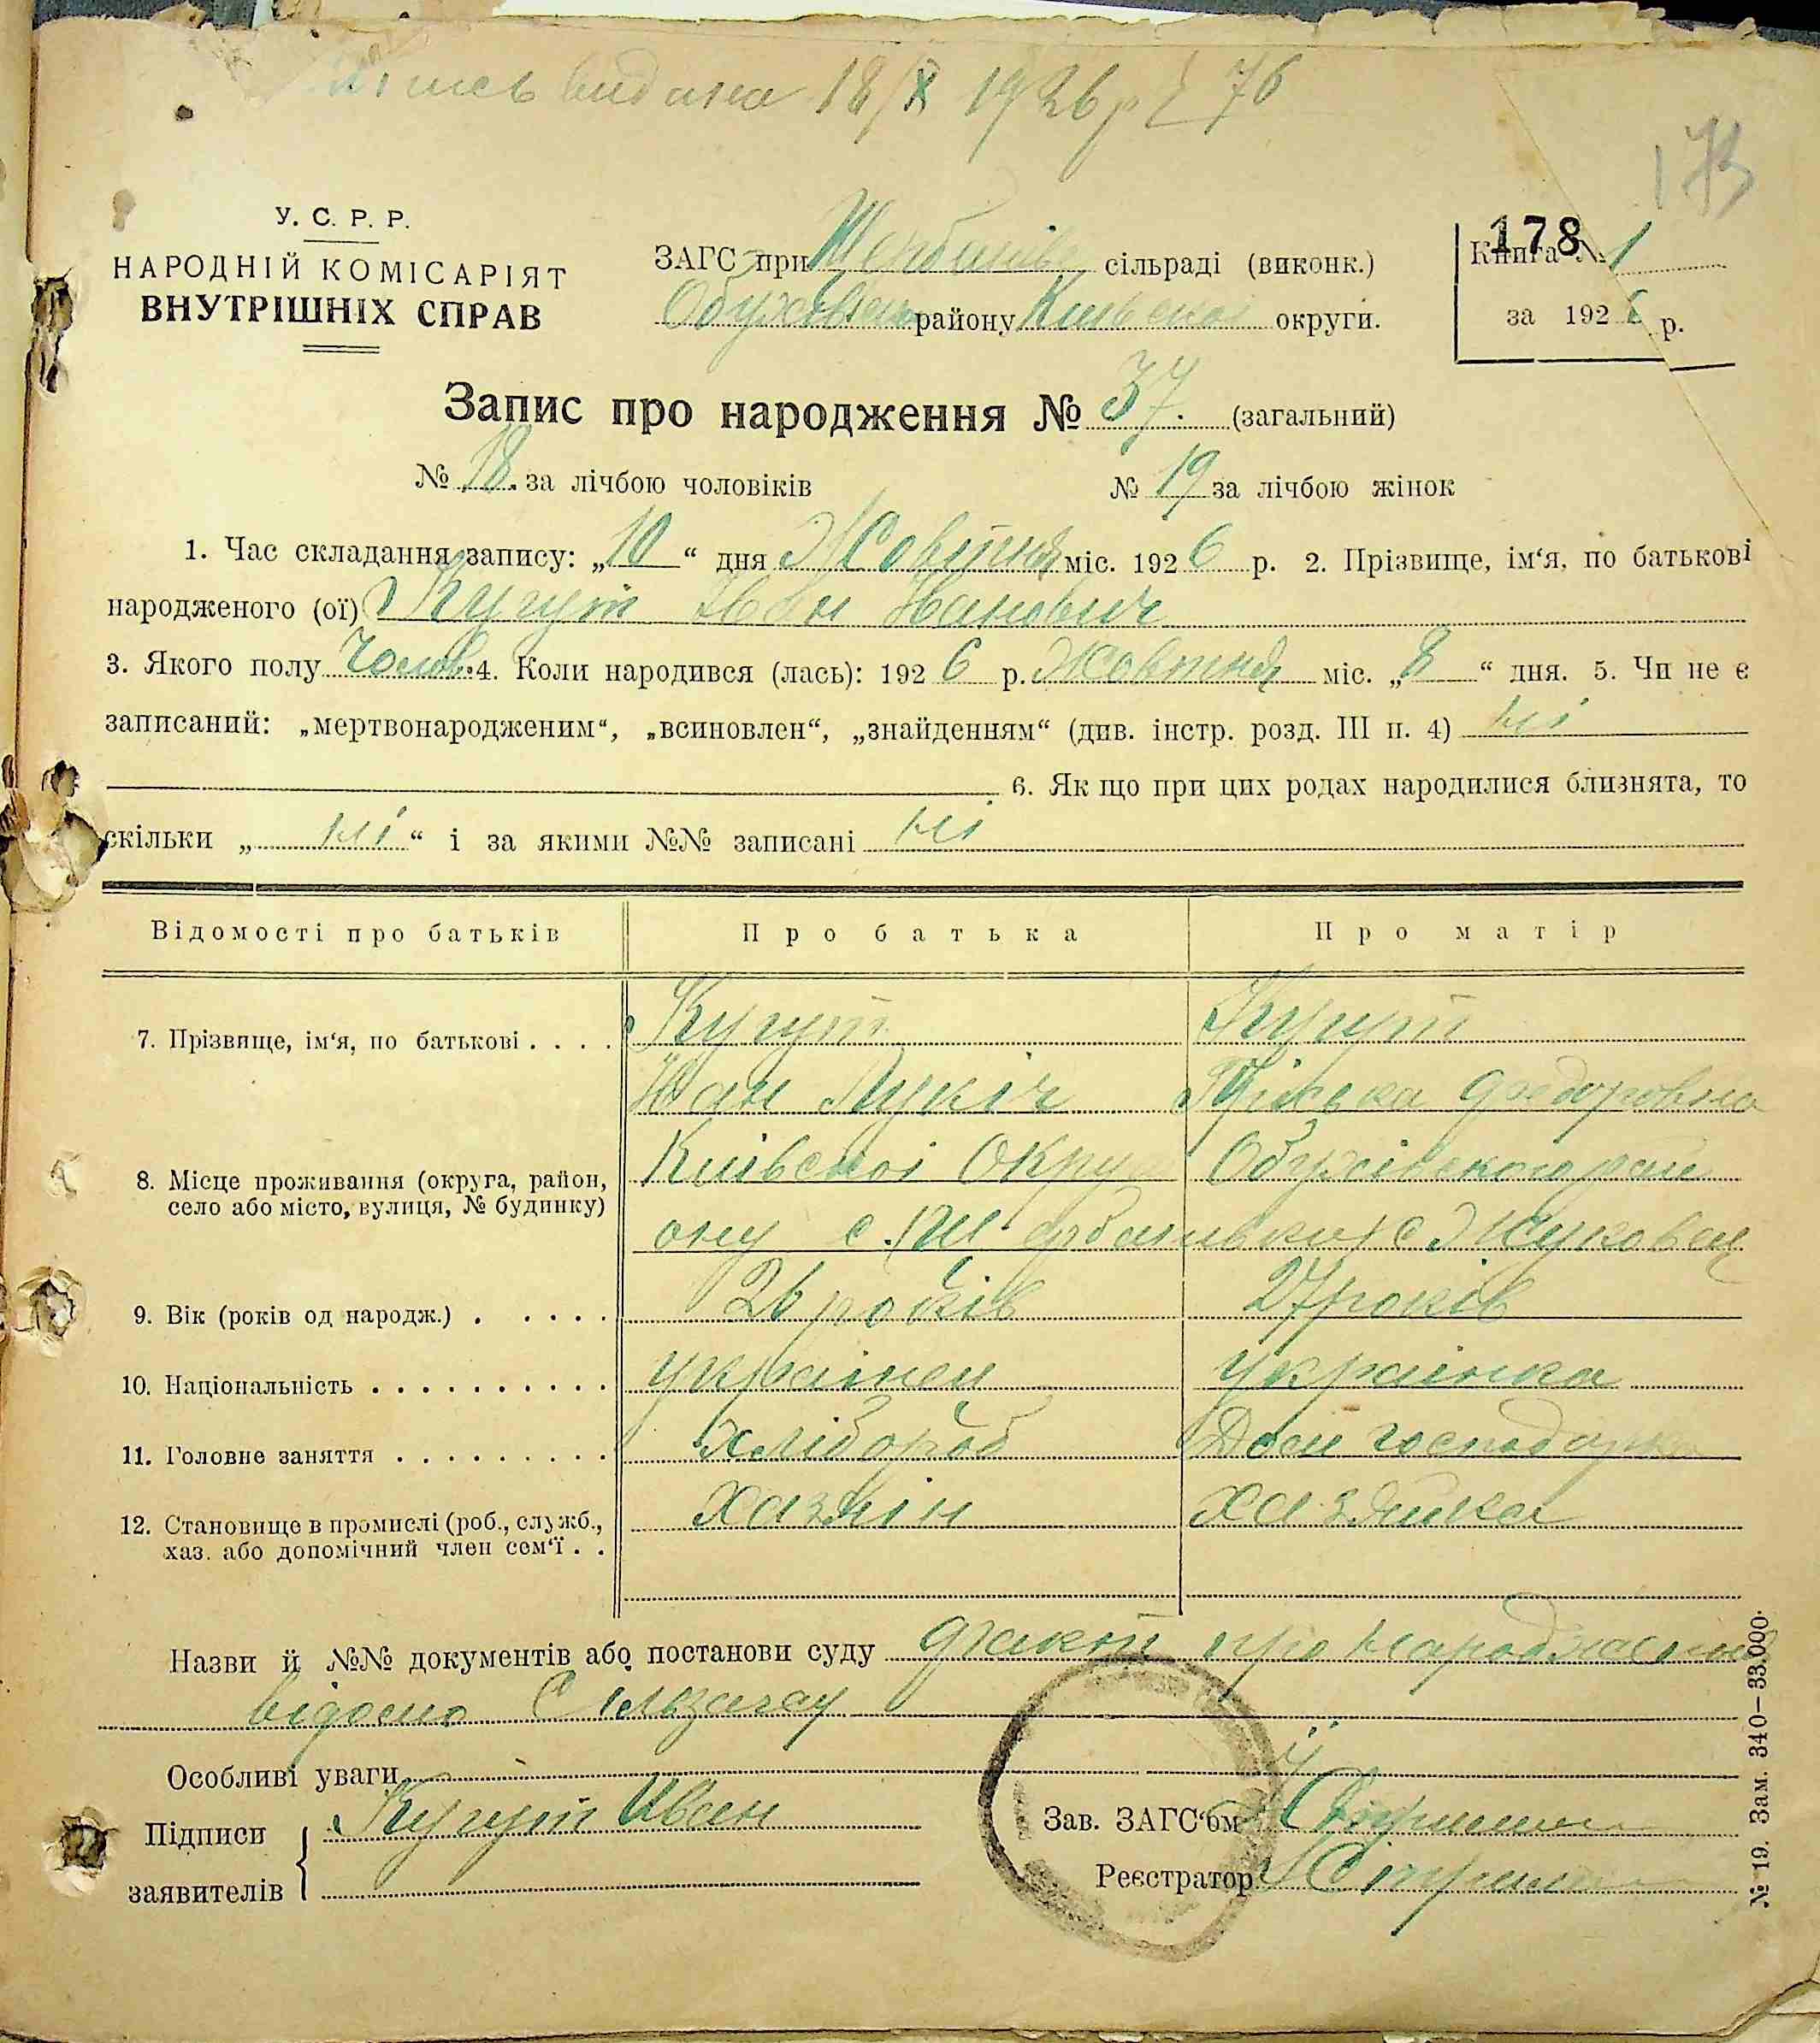 видана 18/X 1926 р № 76
173
178
У. С. Р. Р.
НАРОДНІЙ КОМІСАРІЯТ
ВНУТРІШНІХ СПРАВ
ЗАГС при Щербанівс сільраді (виконк.)
Обухівськ району Київської округи.
Книга № 1
за 1926 р.
Запис про народження № 37. (загальний)
№ 18. за лічбою чоловіків № 19 за лічбою жінок
1. Час складання запису: „10“ дня Жовтня міс. 1926 р. 2. Прізвище, ім‘я, по батькові
народженого (ої) Кугут Іван Іванович
3. Якого полу Чолов. 4. Коли народився (лась): 1926 р. Жовтня міс. „8“ дня. 5. Чи не є
записаний: „мертвонародженим“, „всиновлен“, „знайденням“ (див. інстр. розд. III п. 4) ні
6. Як що при цих родах народилися близнята, то
скільки „ні“ і за якими №№ записані ні
Відомості про батьків Про батька Про матір
7. Прізвище, ім‘я, по батькові . . . . Кугут Кугут
Іван Лукіч Федоровна
8. Місце проживання (округа, район, село або місто, вулиця, № будинку) Київської Окру Обухівского рай
ону с. Щербанівки с Жуковец
9. Вік (років од народж.) . . . . . 26 років 27 років
10. Національність . . . . . . . . . . українец українка
11. Головне заняття . . . . . . . . . хлібороб Дом господарка
12. Становище в промислі (роб., служб., хаз. або допомічний член сем‘ї . . хазяін хазяйка
Назви й №№ документів або постанови суду факт про народження
відомо Сільзагсу
Особливі уваги
Підписи заявителів Кугут Иван
Зав. ЗАГС‘ом
Реєстратор
№ 19. Зам. 340—33.000.